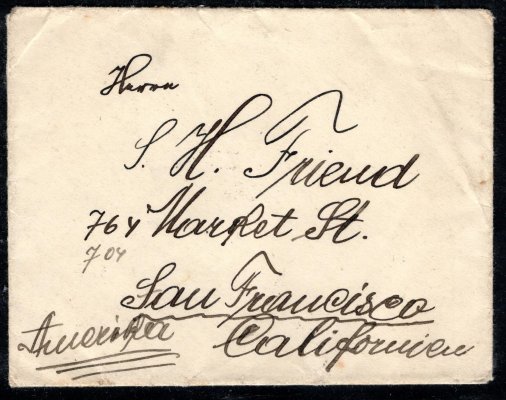 Herrn
S. H. Friend
764 Market St.
704
San Francisco
Amerika Californien